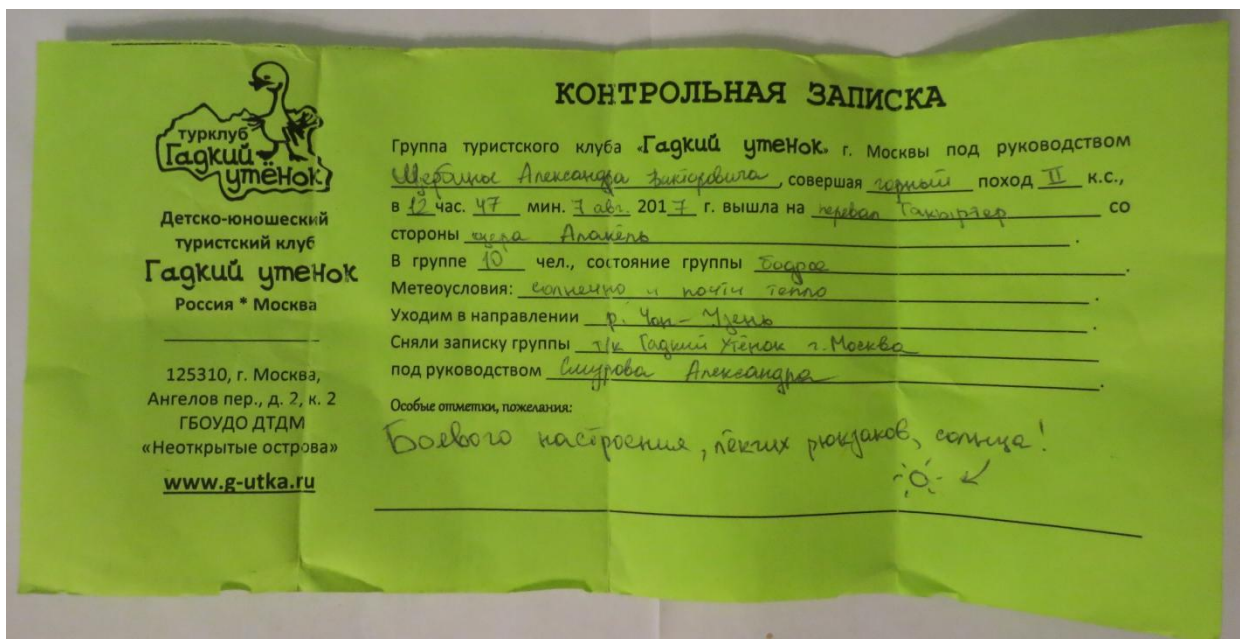 турклуб
Гадкий
утёнок
Детско-юношеский
туристский клуб
Гадкий утенок
Россия * Москва
125310, г. Москва,
Ангелов пер., д. 2, к. 2
ГБОУДО ДТДМ
«Неоткрытые острова»
www.g-utka.ru
КОНТРОЛЬНАЯ ЗАПИСКА
Группа туристского клуба «Гадкий утенок» г. Москвы под руководством
Александра Викторовича, совершая горный поход II к.с.,
в 12 час. 47 мин. 7 авг. 2017 г. вышла на перевал со
стороны озера Алакёль.
В группе 10 чел., состояние группы бодрое.
Метеоусловия: солнечно и почти тепло.
Уходим в направлении р. Чон-Узень
Сняли записку группы т/к Гадкий Утёнок г. Москва
под руководством Смурова Александра.
Особые отметки, пожелания:
Боевого настроения, лёгких рюкзаков, солнца!